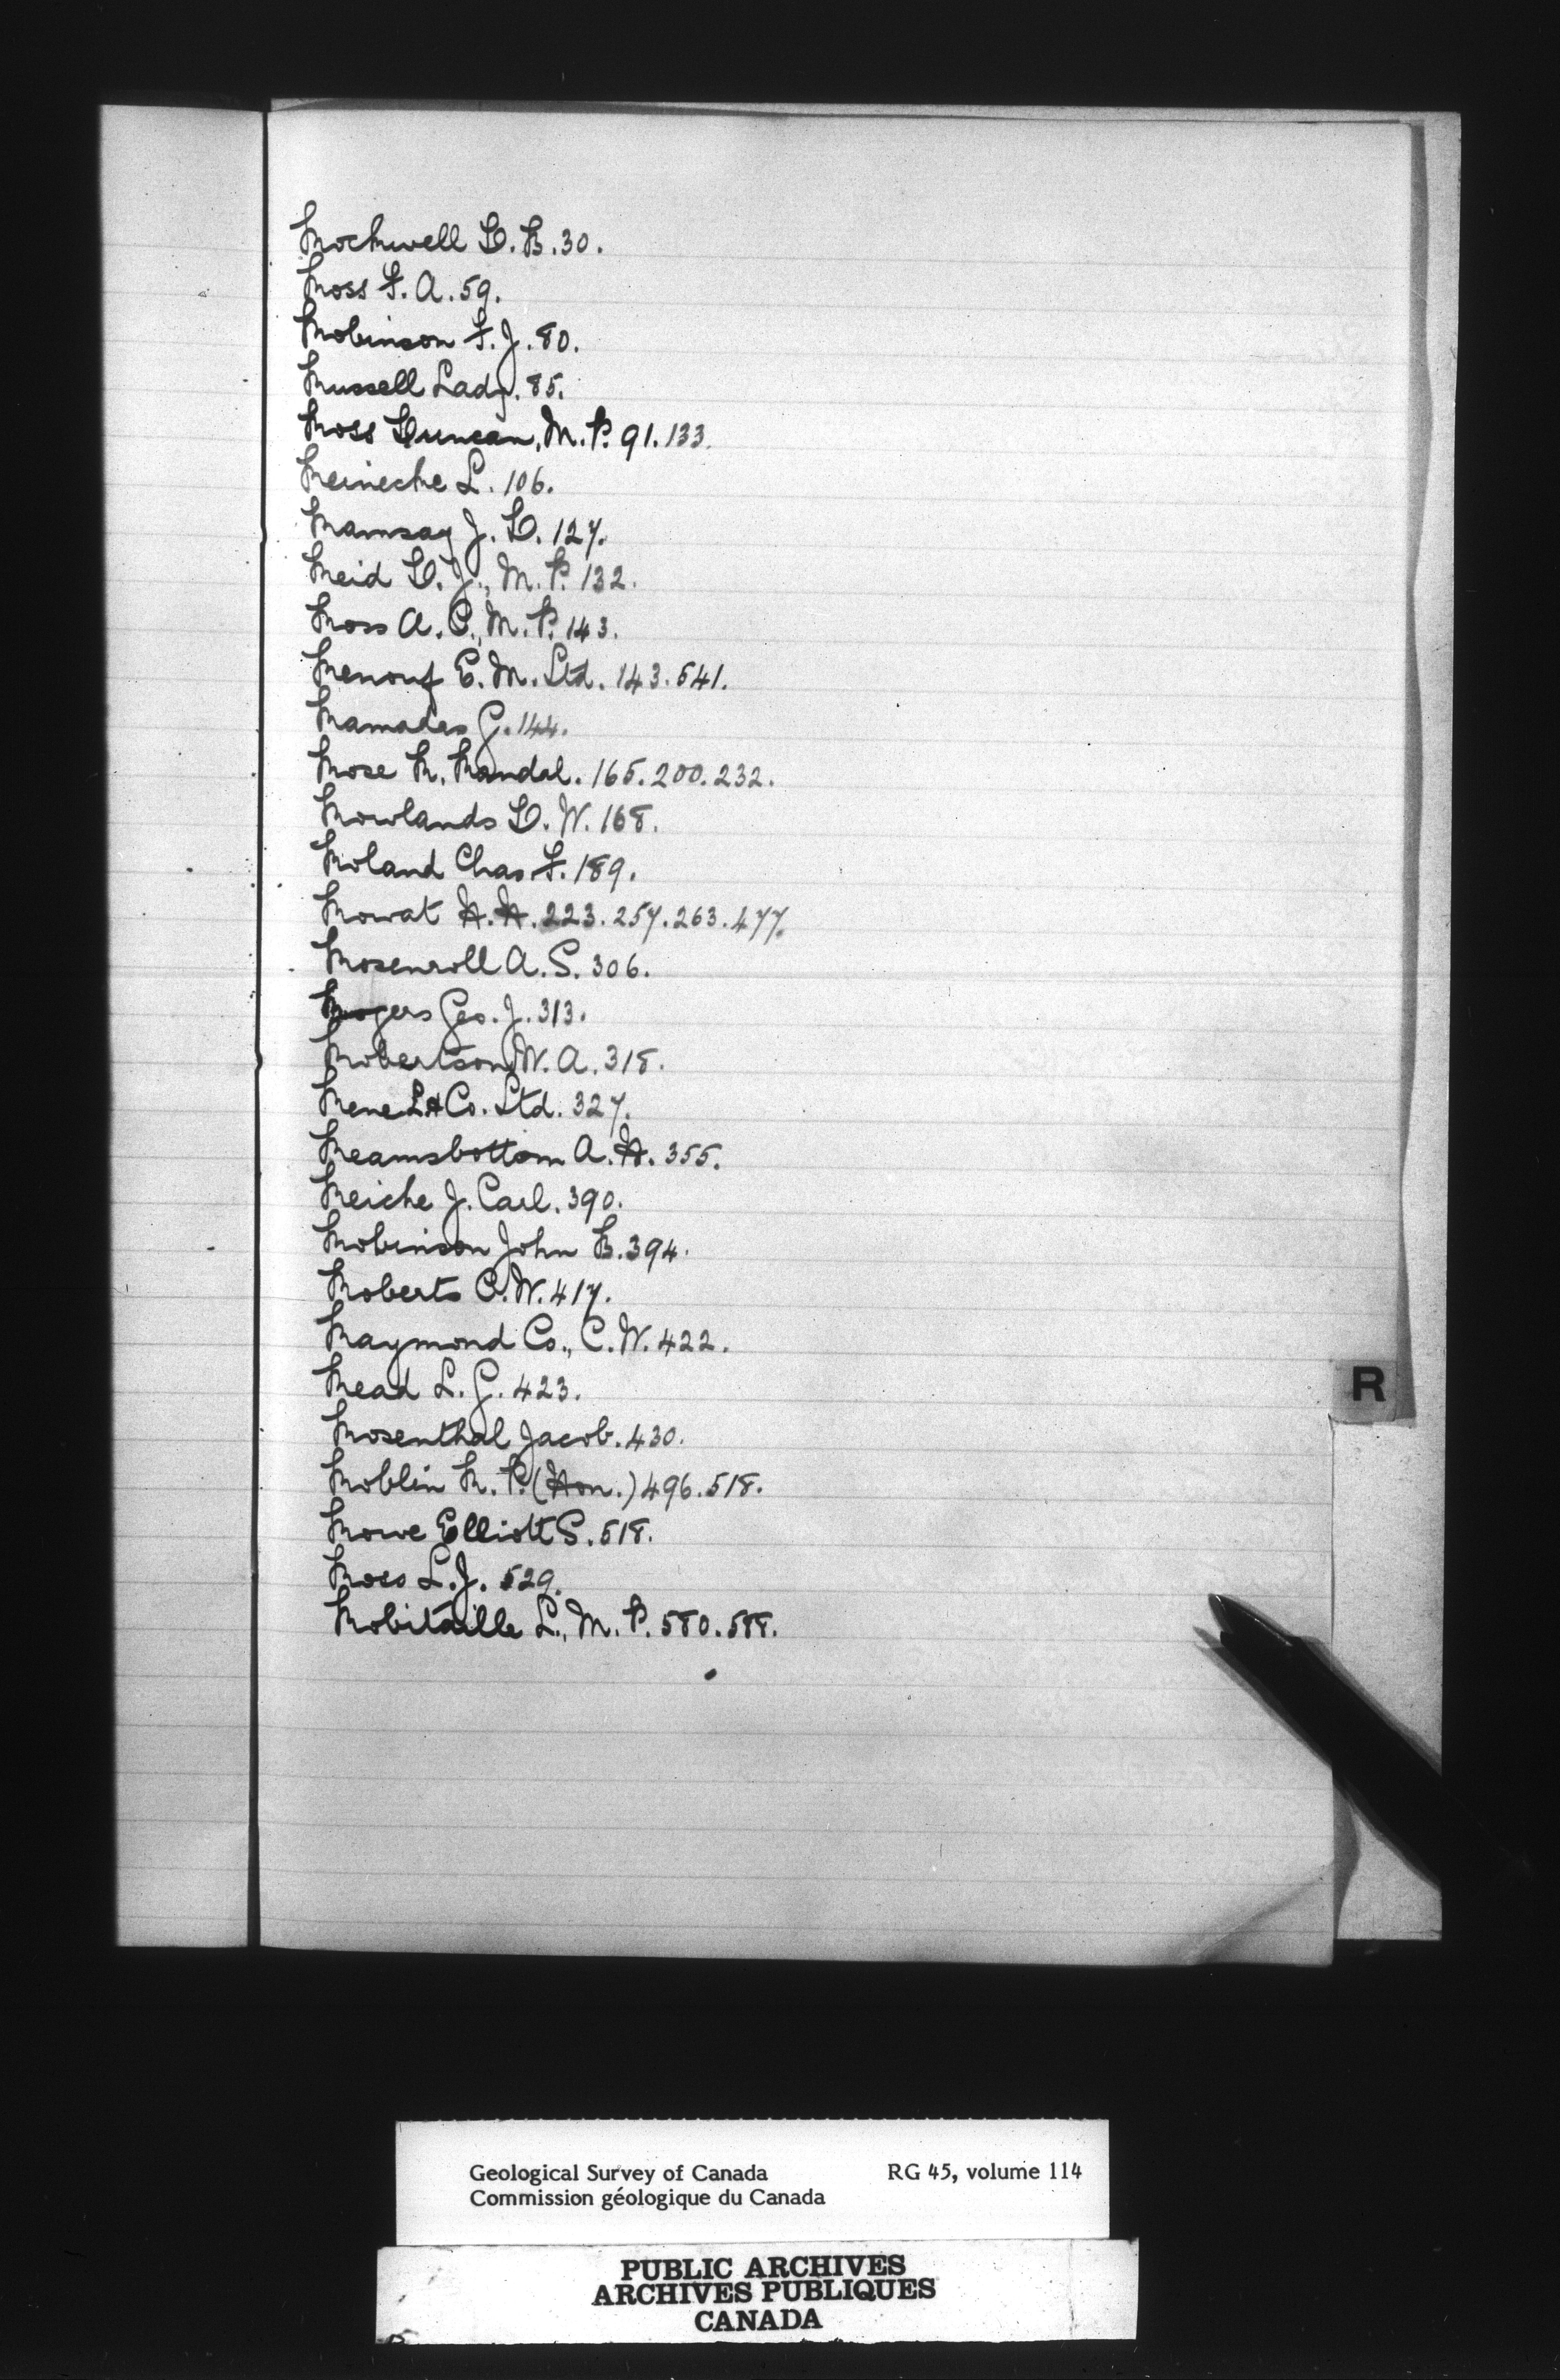 Rockwell D. B. 30.
Ross F. A. 59.
Robinson F. J. 80.
Russell Lady. 85.
Ross Duncan, M. P. 91. 133.
Reinecke L. 106.
Ramsay J. D. 127.
Reid D. J., M. P. 132.
Ross A. C., M. P. 143.
Renouf E. M. Ltd. 143. 541.
Ramades G. 144.
Rose R. Randal. 165. 200. 232.
Rowlands D. W. 168.
Roland Chas F. 189.
Rowat H. H. 223. 257. 263. 477.
Rosenroll A. S. 306.
Rogers Geo. J. 313.
Robertson W. A. 318.
Rene L & Co. Ltd. 327.
Reamsbottom A. H. 355.
Reiche J. Carl. 390.
Robinson John B. 394.
Roberts C. W. 417.
Raymond Co., C. W. 422.
Read L. G. 423.
Rosenthal Jacob. 430.
Roblin R. P. (Hon.) 496. 518.
Rowe Elliott S. 518.
Ross L. J. 529.
Robitaille L., M. P. 580. 588.
R
Geological Survey of Canada RG 45, volume 114
Commission géologique du Canada
PUBLIC ARCHIVES
ARCHIVES PUBLIQUES
CANADA